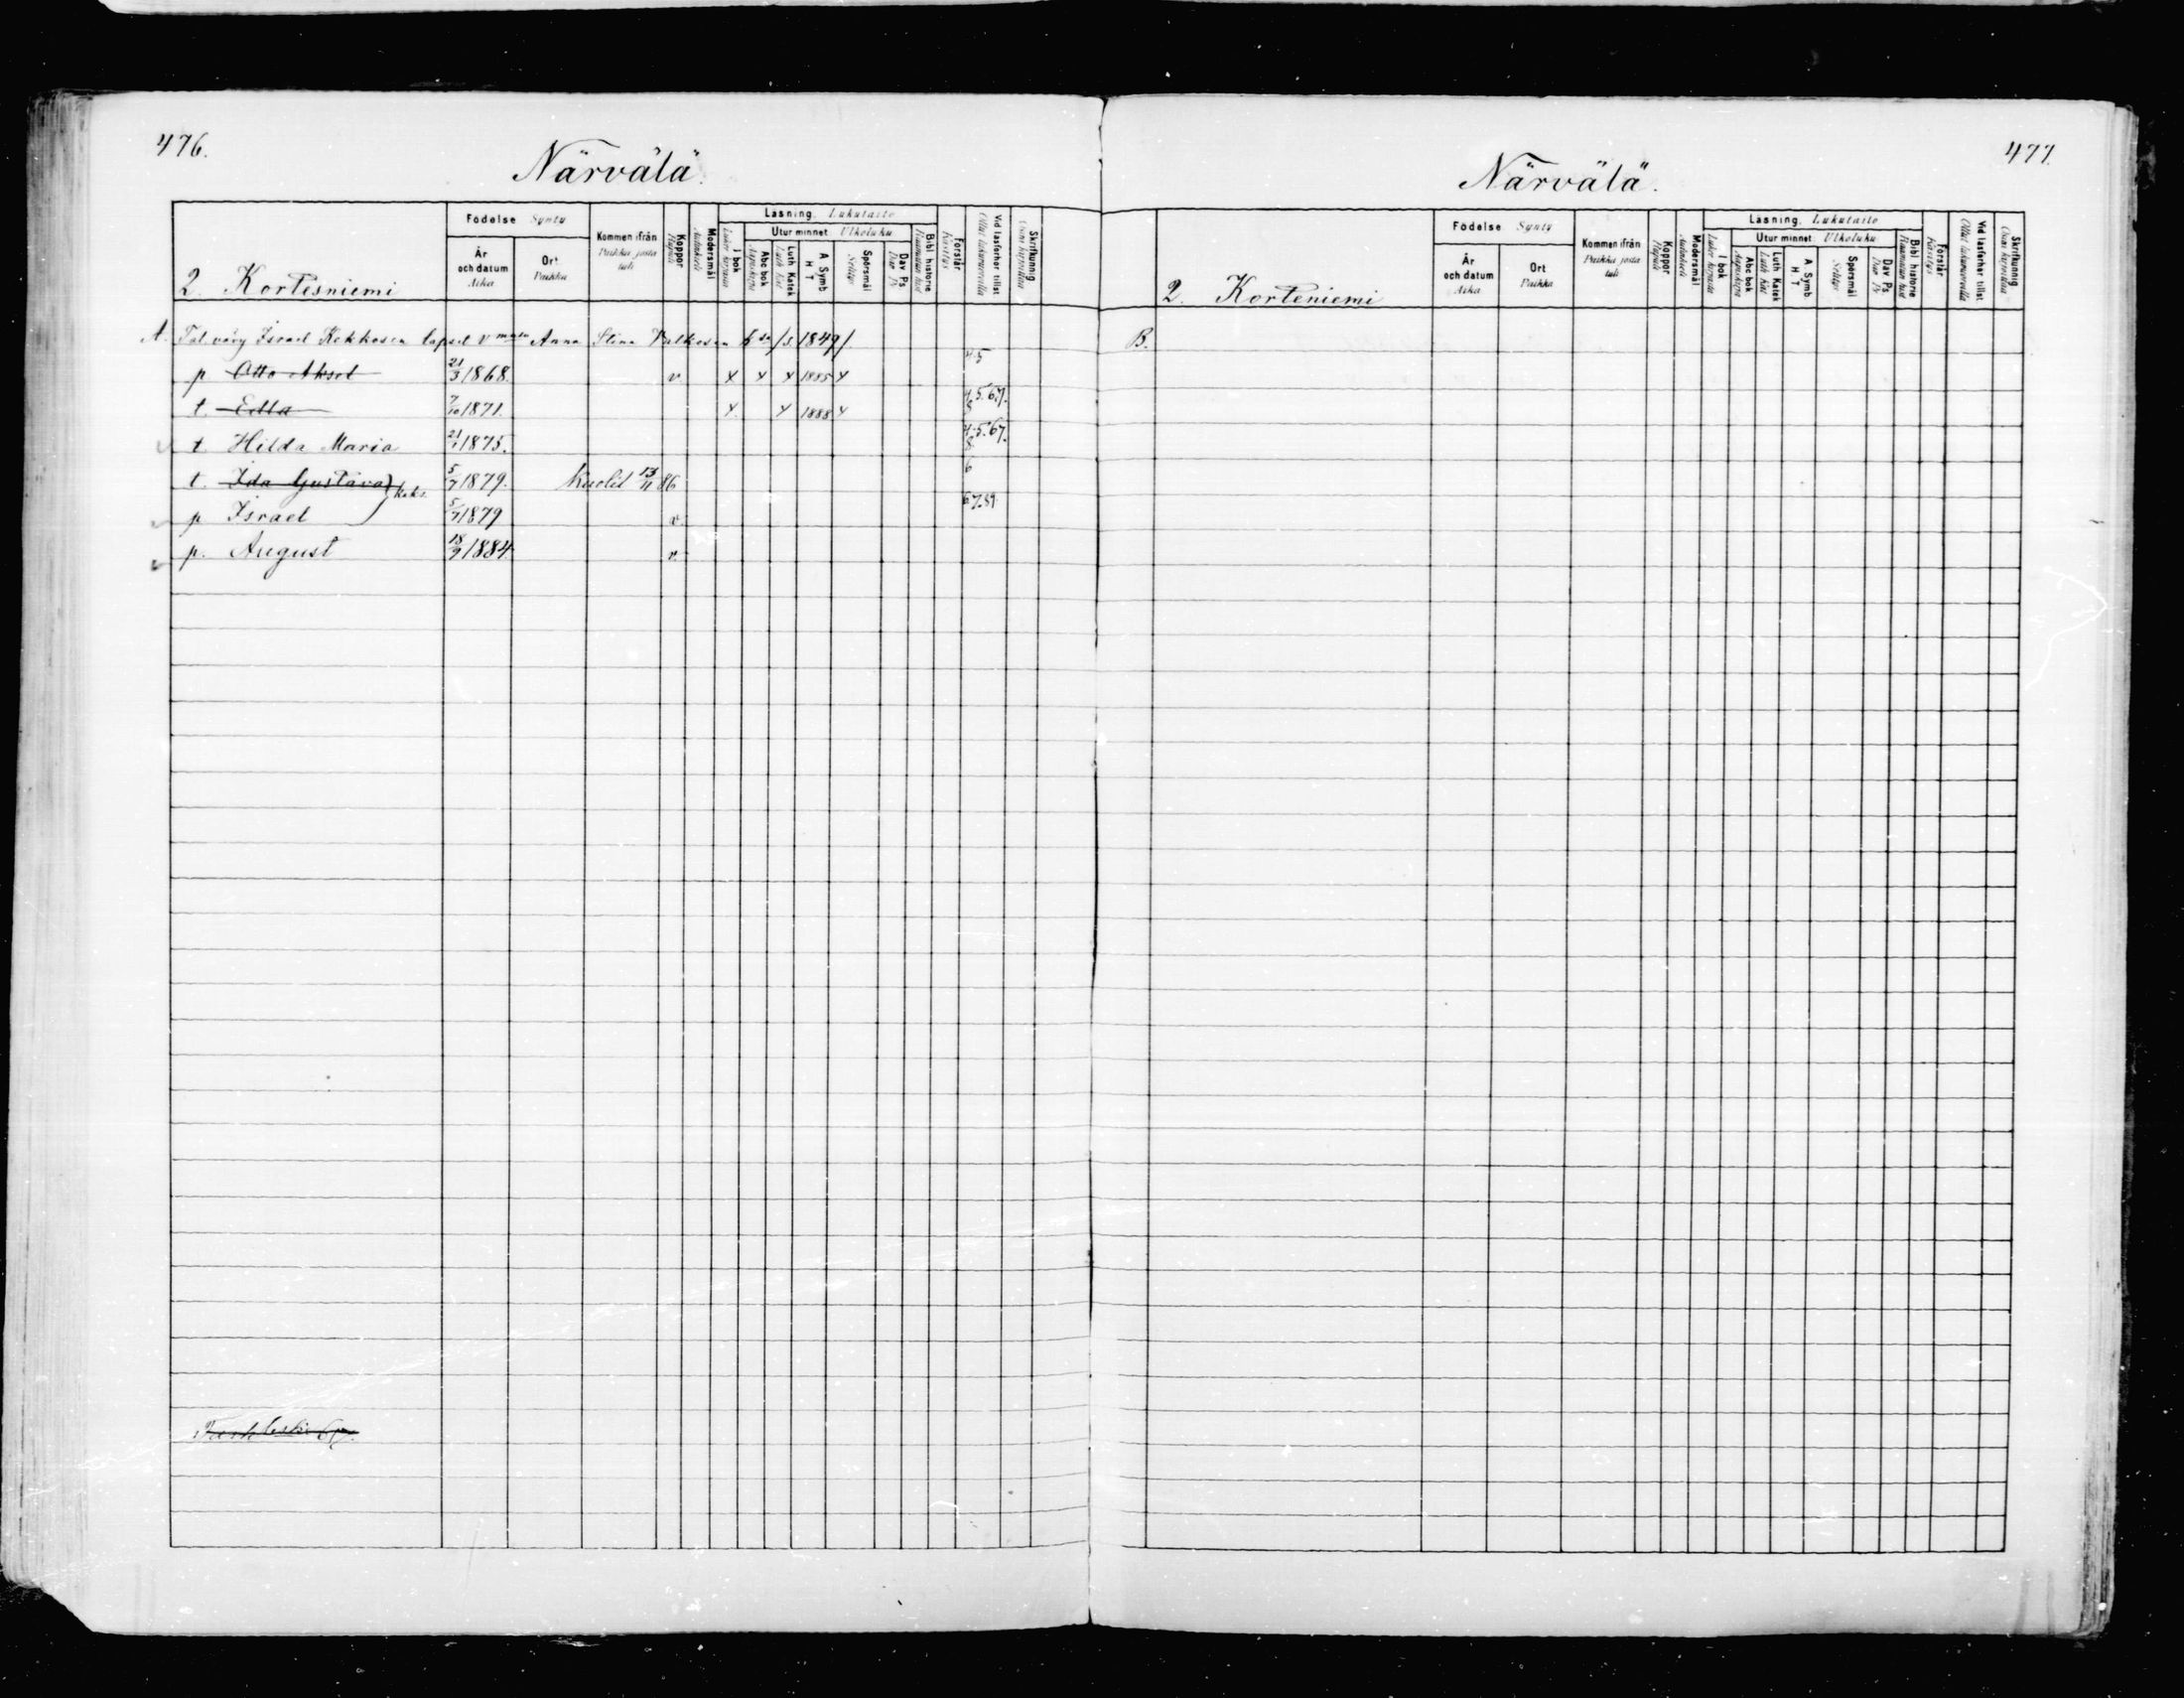 476.
Närvälä.
2. Kortesniemi
Födelse Synty
År och datum Aika
Ort Paikka
Kommen ifrån Paikka josta tuli
Koppor Rupuli
Modersmål Äidinkieli
Läsning. Lukutaito
I bok
Utur minnet Ulkoluku
Abc bok
Luth Katek
A Symb H T
Spörsmål
Dav Ps
Bibl historie
Förstår Käsitys
Vid läsförhör tillst
Skrifkunnig
A. Tal. väv̈y Israel Kekkosen lapset V Anna Stina /s. 1849/
p Otto Aksel 21/3 1868. v. x x x 1885 x 4.5
t. Edla 7/10 1871. x x 1888 x 4.5.6.7. 8
t. Hilda Maria 21/1 1875. 4.5.6.7. 8.
t. Ida Gustava kaks. 5/7 1879. Kuollut 13/11 86 6
p Israel 5/7 1879 v. 6.7.89.
p. August 18/9 1884 v.
477.
Närvälä.
2. Korteniemi
Födelse Synty
År och datum Aika
Ort Paikka
Kommen ifrån Paikka josta tuli
Koppor Rupuli
Modersmål Äidinkieli
Läsning. Lukutaito
I bok
Utur minnet Ulkoluku
Abc bok
Luth Kat
A Symb H T
Spörsmål
Dav Ps
Bibl historie
Förstår Käsitys
Vid läsförhör tillst
Skrifkunnig
B.